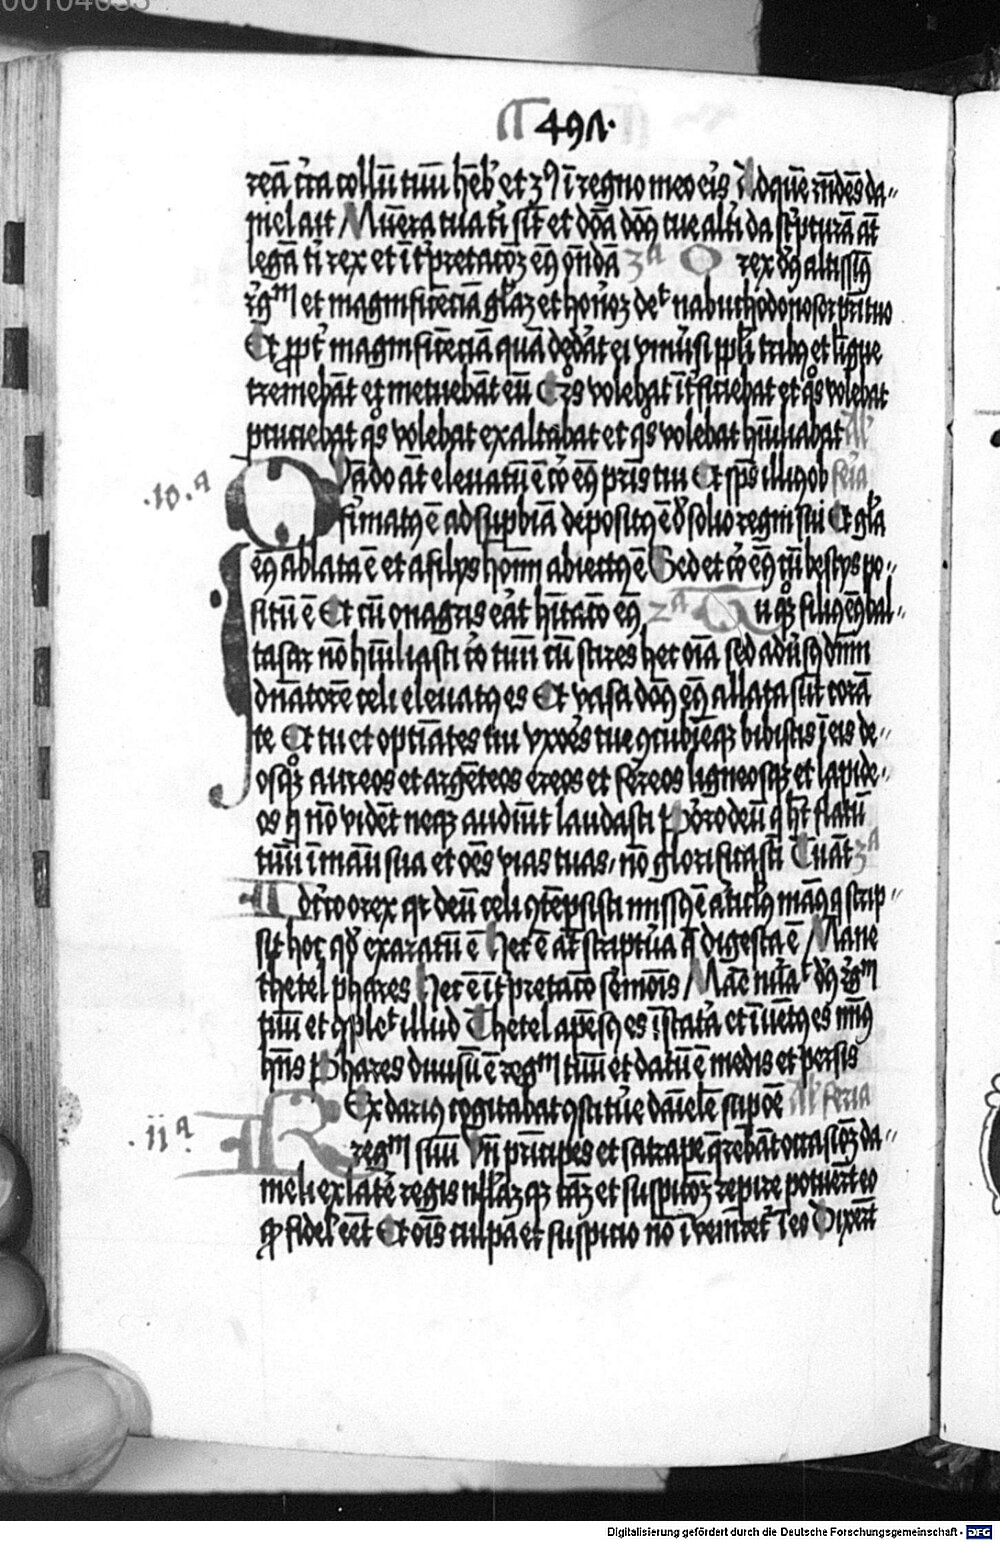 491.
reā circa collū tuū hēb et 3ꝰ ī regno meo eis Ad que rn̄des da-
niel ait Mūera tua ti sīt et dōa domꝰ tue alti da scpturā āt
legā ti rex et īt̄pretatōꝫ eiꝰ ōndā 3ª O rex dꝰ altissīꝰ
rgᵐ et magnificēciā glaꝫ et honoꝫ de᷒ nabuchodonosor pri tuo
Et ꝓpt magnificēciā quā dedāt ei vniūsi ppli tribꝰ et ligue
tremebāt et metuebāt eū Quos volebat īt̄ficiebat et qͦs volebat
pcuciebat qͦs volebat exaltabat et qͦs volebat hūiliabat Al
.10.ª Quādo āt eleuatū ē cor eiꝰ pris tui Et sps illiꝰ ob feria
firmatꝰ ē ad supbiā depositꝰ ē de solio regni sui Et gla
eiꝰ ablata ē et a filijs hoīm abiectꝰ ē Sed et cor eiꝰ cū bestijs po-
situ ē Et cū onagris eāt hītatō eiꝰ 2ª Tu qꝫ filiꝰ eiꝰ bal-
tasar nō hūiliasti cor tuū cū scires hec oīa sed adūsꝰ dn̄m
dn̄atorē celi eleuatꝰ es Et vasa domꝰ eiꝰ allata sūt corā
te Et tu et optīates tui vxōes tue ꝯcubīeqꝫ bibistis ī eis de-
osqꝫ aureos et argēteos ereos et ferreos ligneosqꝫ et lapide-
os q nō vidēt neqꝫ audiūt laudasti Porro deū q hꝫ flatū
tuū ī manu sua et oēs vias tuas nō glorificasti Euāt 3ª
Idcirco o rex qr deū celi ꝯtēpsisti missꝰ ē articlꝰ manꝰ q scrip-
sit hoc qd exaratū ē Hec ē āt scriptura q digesta ē Mane
thetel phares Hec ē īt̄pretatō sermois Mane nūa᷒ dꝰ rgᵐ
tuū et ꝯple᷒ illud Thetel apēsꝰ es ī statā et īuētꝰ es minꝰ
hn̄s Phares diuisū ē regᵐ tuū et datū ē medis et persis
.11ª Rex darius cogitabat ꝯstitue danielē sup oē Al feria
regᵐ suū Vn̄ principes et satrape querebāt occasioꝫ da-
nieli ex late regis nllāqꝫ cāꝫ et suspitōꝫ repire potuert eo
ꝙ fidel eēt Et oīs culpa et suspicio nō īueniret᷒ ī eo Dixert
Digitalisierung gefördert durch die Deutsche Forschungsgemeinschaft - DFG